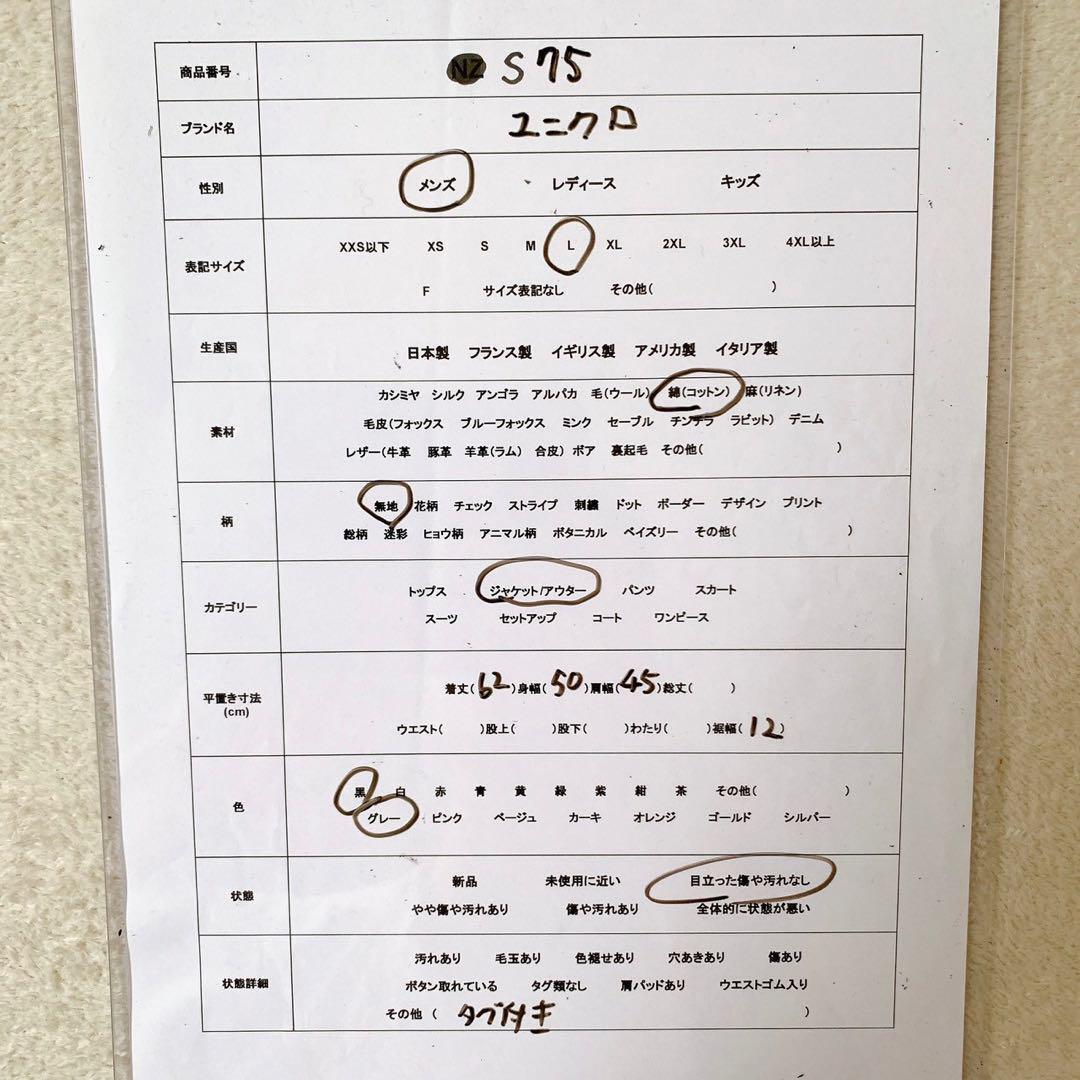 商品番号 NZ S 75
ブランド名 ユニクロ
性別 メンズ レディース キッズ
表記サイズ
XXS以下 XS S M L XL 2XL 3XL 4XL以上
F サイズ表記なし その他( )
生産国 日本製 フランス製 イギリス製 アメリカ製 イタリア製
素材
カシミヤ シルク アンゴラ アルパカ 毛(ウール) 綿(コットン) 麻(リネン)
毛皮(フォックス ブルーフォックス ミンク セーブル チンチラ ラビット) デニム
レザー(牛革 豚革 羊革(ラム) 合皮) ボア 裏起毛 その他( )
柄
無地 花柄 チェック ストライプ 刺繍 ドット ボーダー デザイン プリント
総柄 迷彩 ヒョウ柄 アニマル柄 ボタニカル ペイズリー その他( )
カテゴリー
トップス ジャケット/アウター パンツ スカート
スーツ セットアップ コート ワンピース
平置き寸法
(cm)
着丈(62)身幅(50)肩幅(45)総丈( )
ウエスト( )股上( )股下( )わたり( )裾幅(12)
色
黒 白 赤 青 黄 緑 紫 紺 茶 その他( )
グレー ピンク ベージュ カーキ オレンジ ゴールド シルバー
状態
新品 未使用に近い 目立った傷や汚れなし
やや傷や汚れあり 傷や汚れあり 全体的に状態が悪い
状態詳細
汚れあり 毛玉あり 色褪せあり 穴あきあり 傷あり
ボタン取れている タグ類なし 肩パッドあり ウエストゴム入り
その他 ( タグ付き )